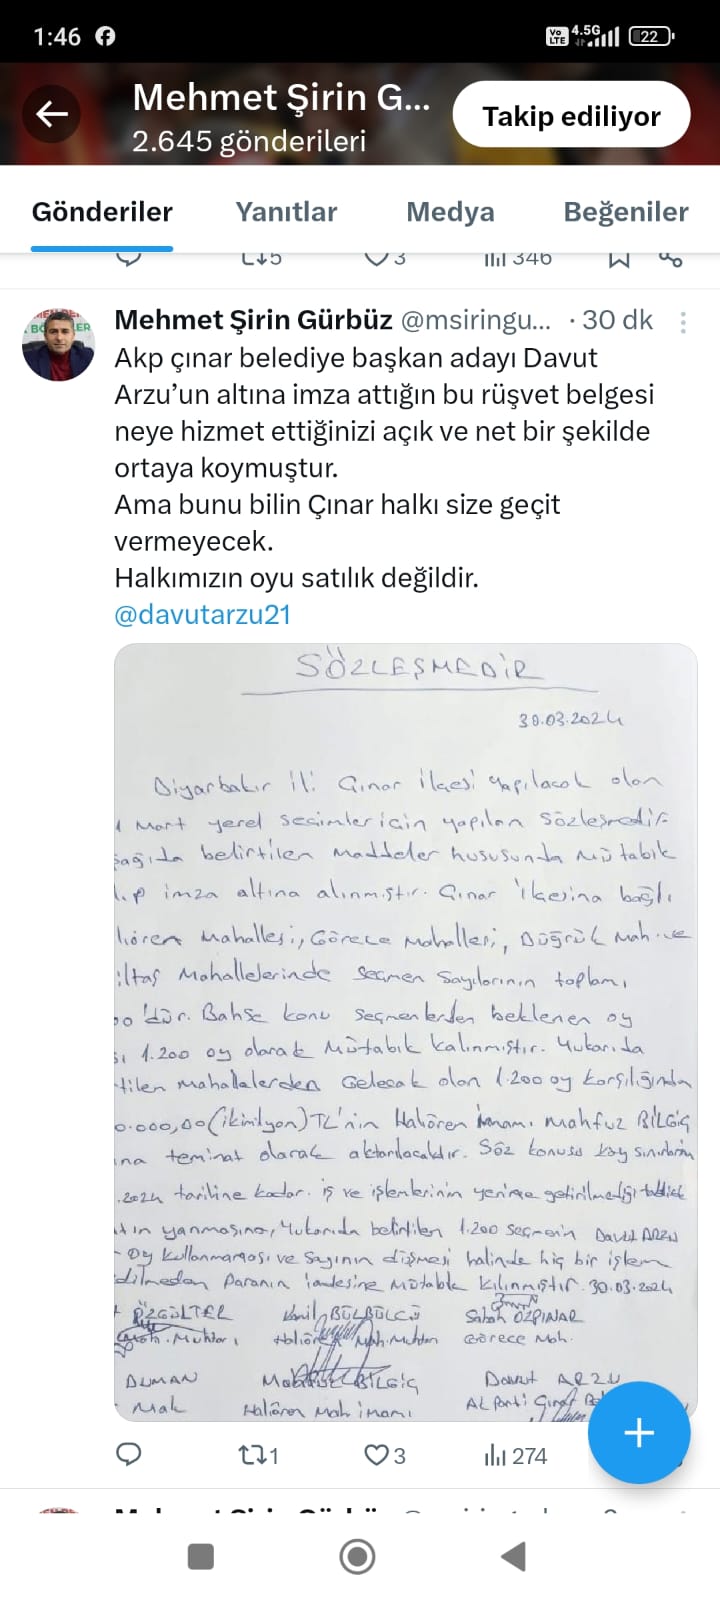 1:46
Vo LTE 4.5G 22
Mehmet Şirin G...
2.645 gönderileri
Takip ediliyor
Gönderiler Yanıtlar Medya Beğeniler
5 3 346
Mehmet Şirin Gürbüz @msiringu... · 30 dk
Akp çınar belediye başkan adayı Davut
Arzu’un altına imza attığın bu rüşvet belgesi
neye hizmet ettiğinizi açık ve net bir şekilde
ortaya koymuştur.
Ama bunu bilin Çınar halkı size geçit
vermeyecek.
Halkımızın oyu satılık değildir.
@davutarzu21
SÖZLEŞMEDİR
30.03.2024
Diyarbakır ili Çınar ilçesi yapılacak olan
1 Mart yerel seçimler için yapılan sözleşmedir
şağıda belirtilen maddeler hususunda mütabık
ıp imza altına alınmıştır. Çınar ilçesina bağlı
lören Mahallesi, Görece Mahallesi, Düğrük Mah. ve
iltaş Mahallelerinde seçmen sayılarının toplamı
00'dür. Bahse konu seçmenlerden beklenen oy
sı 1.200 oy olarak mütabık kalınmıştır. Yukarıda
tilen mahallelerden gelecek olan 1.200 oy karşılığında
0.000,00 (ikimilyon) TL'nin Halören imamı Mahfuz BİLGİÇ
ına teminat olarak aktarılacaktır. Söz konusu köy sınırların
.2024 tarihine kadar iş ve işlemlerinin yerine getirilmediği taktirde
yanmasına, Yukarıda belirtilen 1.200 seçmenin Davut ARZU
Oy kullanmaması ve sayının düşmesi halinde hiç bir işlem
dilmeden Paranın iadesine mütabık kılınmıştır. 30.03.2024
ÖZGÜLTER Kamil BÜLBÜLCÜ Sabah ÖZPINAR
Mah. Muhtarı Halören Mah. Muhtarı Görece Mah.
DUMAN Mahfuz BİLGİÇ Davut ARZU
Mah Halören Mah imamı AK Parti Çınar
1 3 274